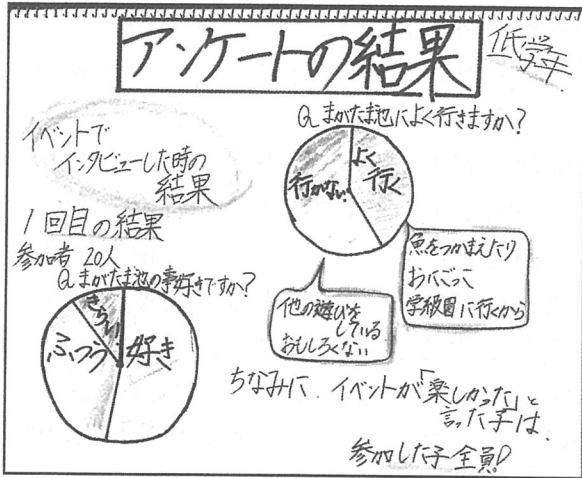 アンケートの結果
低学年
イベントで
インタビューした時の
結果
1回目の結果
参加者 20人
Q まがたま池の事好きですか?
きらい
ふつう
好き
Q まがたま池によく行きますか?
よく
行く
行かない
魚をつかまえたり
おにごっこ
学級園に行くから
他の遊びを
している
おもしろくない
ちなみに、イベントが「楽しかった」と
言った子は、
参加した子全員!